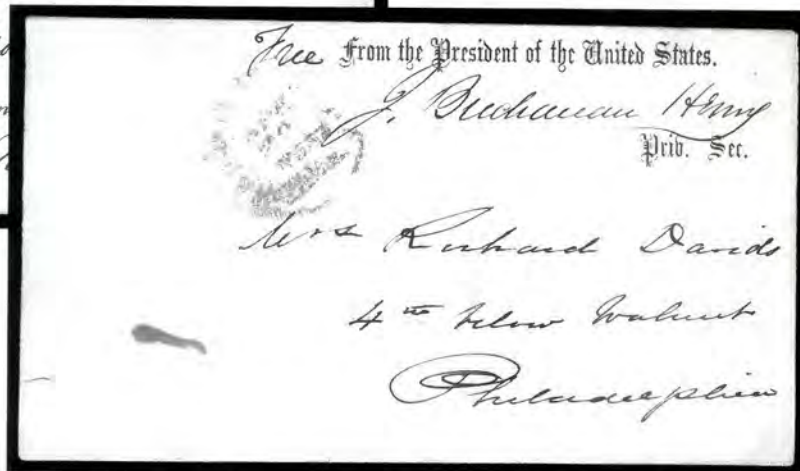 Free From the President of the United States.
J. Buchanan Henry
Priv. Sec.
Mrs Richard Davids
4th below Walnut
Philadelphia